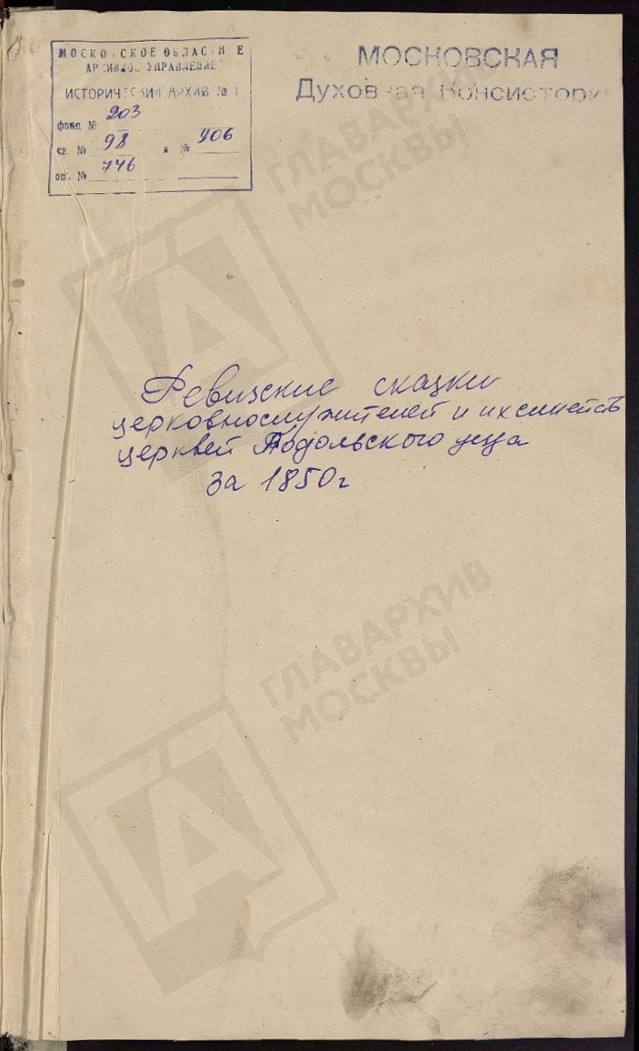 МОСКОВСКОЕ ОБЛАСТНОЕ
АРХИВНОЕ УПРАВЛЕНИЕ
ИСТОРИЧЕСКИЙ АРХИВ №
фонд № 203
св. № 98 д № 906
оп. № 746
МОСКОВСКАЯ
Духовная Консистория
Ревизские сказки
церковнослужителей и их семейств
церквей Подольского уезда
за 1850 г
ГЛАВАРХИВ
МОСКВЫ
ГЛАВАРХИВ
МОСКВЫ